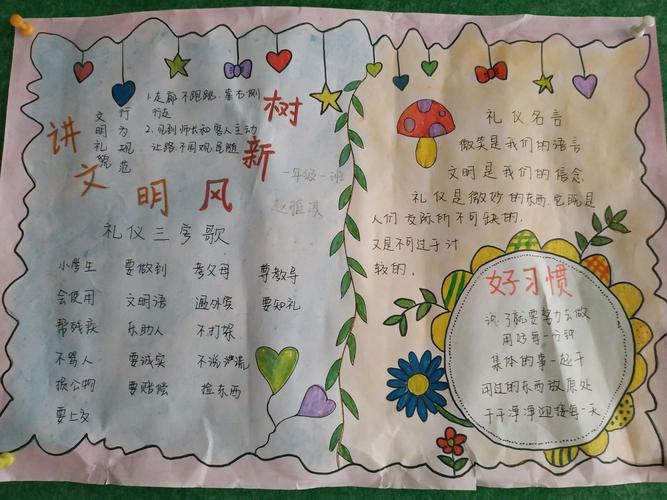 讲文明
树新风
文明礼貌
行为规范
1.走廊不跑跳.靠右侧
行走
2.见到师长和客人主动
让路不围观尾随
一年级一班
礼仪三字歌
小学生 要做到 孝父母 尊教导
会使用 文明语 遇外宾 要知礼
帮残疾 乐助人 不打架
不骂人 要诚实 不说
损公物 要赔偿 捡东西
要上交
礼仪名言
微笑是我们的语言
文明是我们的信念.
礼仪是微妙的东西.它既是
人们交际所不可缺的.
又是不可过于计
较的.
好习惯
说了就要努力去做
用好每一分钟
集体的事一起干
用过的东西放原处
干干净净迎接每一天